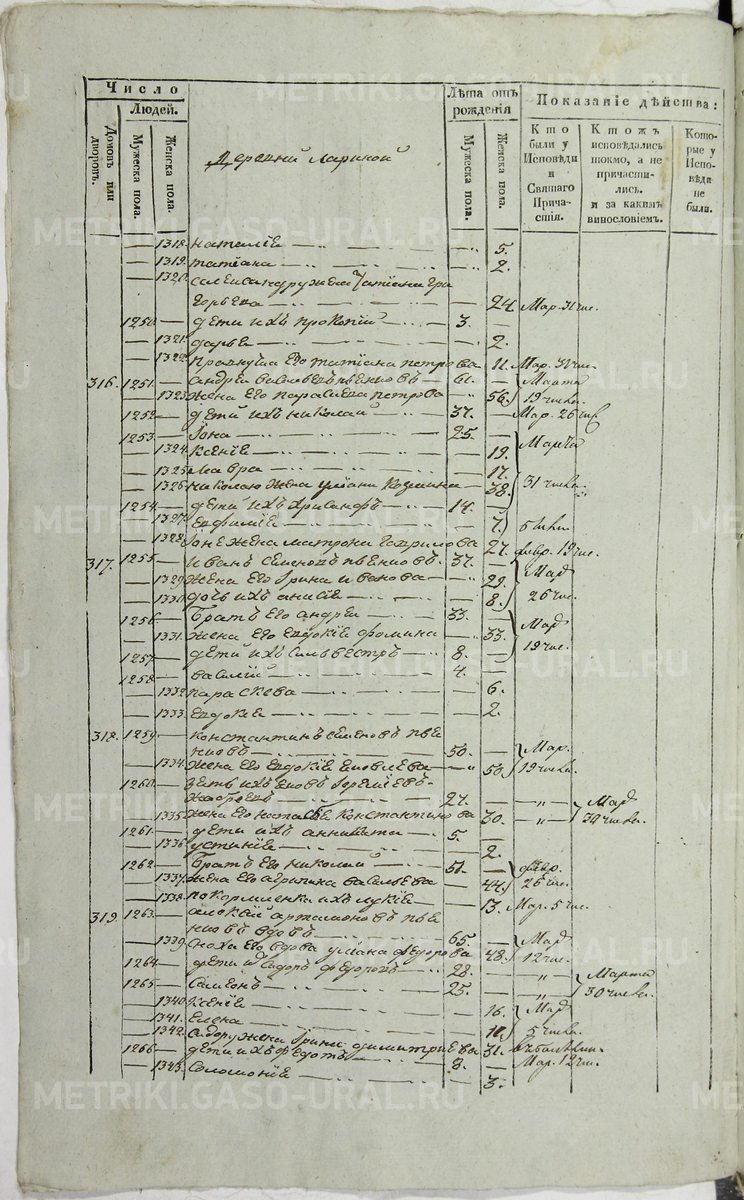 Число
Людей.
Домовъ или дворовъ.
Мужеска пола.
Женска пола.
Деревни Лариной
Лѣта отъ рожденія
Мужеска пола.
Женска пола.
Показаніе дѣйства:
Кто были у Исповѣди и Святаго Причастія.
Кто жъ исповѣдались токмо, а не причастились. и за какимъ винословіемъ.
Которые у Исповѣди не были.
1318. Наталіе 5.
1319. Татіана 2.
1320. жена Татіана Гри
горьева 24. Мар. 31 чис.
1250. дети ихъ Прокопій 3.
1321. Дарье 2.
1322. его Татіана Петрова 11. Мар. 31 чис.
316. 1251. Андрей Васильевъ Пьенковъ 61. Марта
1323. жена его Параскева Петрова 56. 19 числа.
1252. дети ихъ Николай 37. Мар. 26 чис.
1253. Іона 25. Марта
1324. Ксеніе 19.
1325. Мавра 17.
1326. Николаю жена Уліани Козмина 38. 31 числа.
1254. дети ихъ Хрисанфъ 14.
1327. Евфиміе 7. 5 числ.
1328. Іоне жена Матрона Гаврилова 27. Февр. 19 чис.
317. 1255. Иванъ Семеновъ Пьенковъ 37. Мар
1329. жена его Ірина Иванова 29.
1330. дочь ихъ Анисіе 8. 26 чис.
1256. Братъ его Андрей 33. Мар
1331. жена его Евдокіе Фомина 33.
1257. дети ихъ Сильвестръ 8. 19 чис.
1258. Василій 4.
1332. Параскева 6.
1333. Евдокіе 2.
318. 1259. Константинъ Семеновъ Пье
нковъ 50. Мар.
1334. жена его Евдокіе Яковлева 50. 19 числа.
1260. Зять ихъ Яковъ
27. Мар
1335. жена его Наталье Константинова 30. 30 числа.
1261. дети ихъ Аникита 5.
1336. Устиніе 2.
1262. Братъ его Николай 51. Февр.
1337. жена его Агрипина Васильева 44. 26 чис.
1338. покормленка ихъ Лукіе 13. Мар. 5 чис.
319. 1263. Артамоновъ Пье
нковъ вдовъ 65. Мар
1339. Сноха его вдова Уліана Федорова 48. 12 чис.
1264. дети Сидоръ Федоровъ 28. Марта
1265. Симеонъ 25. 30 числа.
1340. Ксеніе 16. Мар
1341. Елена 11. 5 числа.
1342. Сидору жена Ірина Димитриева 31.
1266. дети ихъ Федотъ 8. Мар. 12 чис.
1343. Соломоніе 3.
METRIKI.GASO-URAL.RU